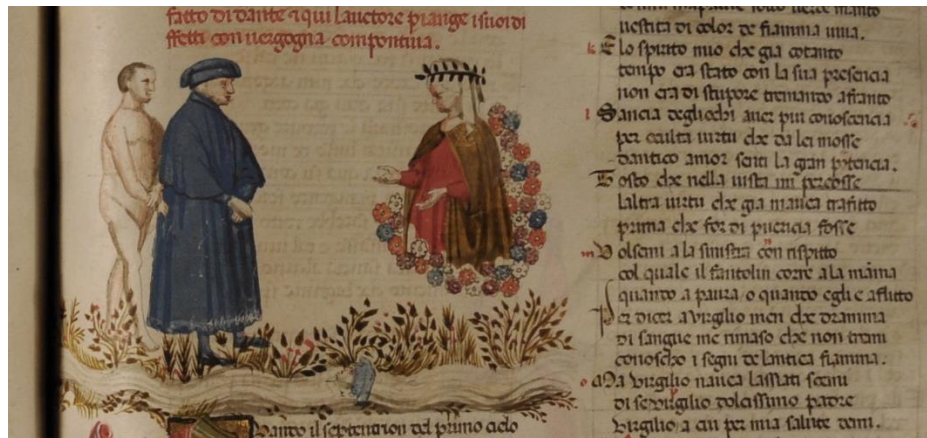 fatto di dante ⁊ qui lauctore piange i suoi di
ffetti con uergogna compontiua.
uando il septentrion del primo cielo
uestita di color de fiamma uiua.
E lo spirito mio che gia cotanto
tempo era stato con la sua presencia
non era di stupore tremando afranto
Sancia degliochi auer piu conoscencia
per oculta uirtu che da lei mosse
dantico amor senti la gran potencia.
Tosto che nella uista mi percosse
laltra uirtu che gia mauea trafitto
prima che for di puericia fosse
Volsemi a la sinistra con rispitto
col quale il fantolin corre a la mama
quando a paura o quando egli e aflitto
Per dicer a uirgilio men che dramma
di sangue me rimaso che non tremi
conoscho i segni de lantica fiamma.
Ma uirgilio nauea lassati scemi
di se uirgilio dolcissimo padre
uirgilio a cui per mia salute demi.